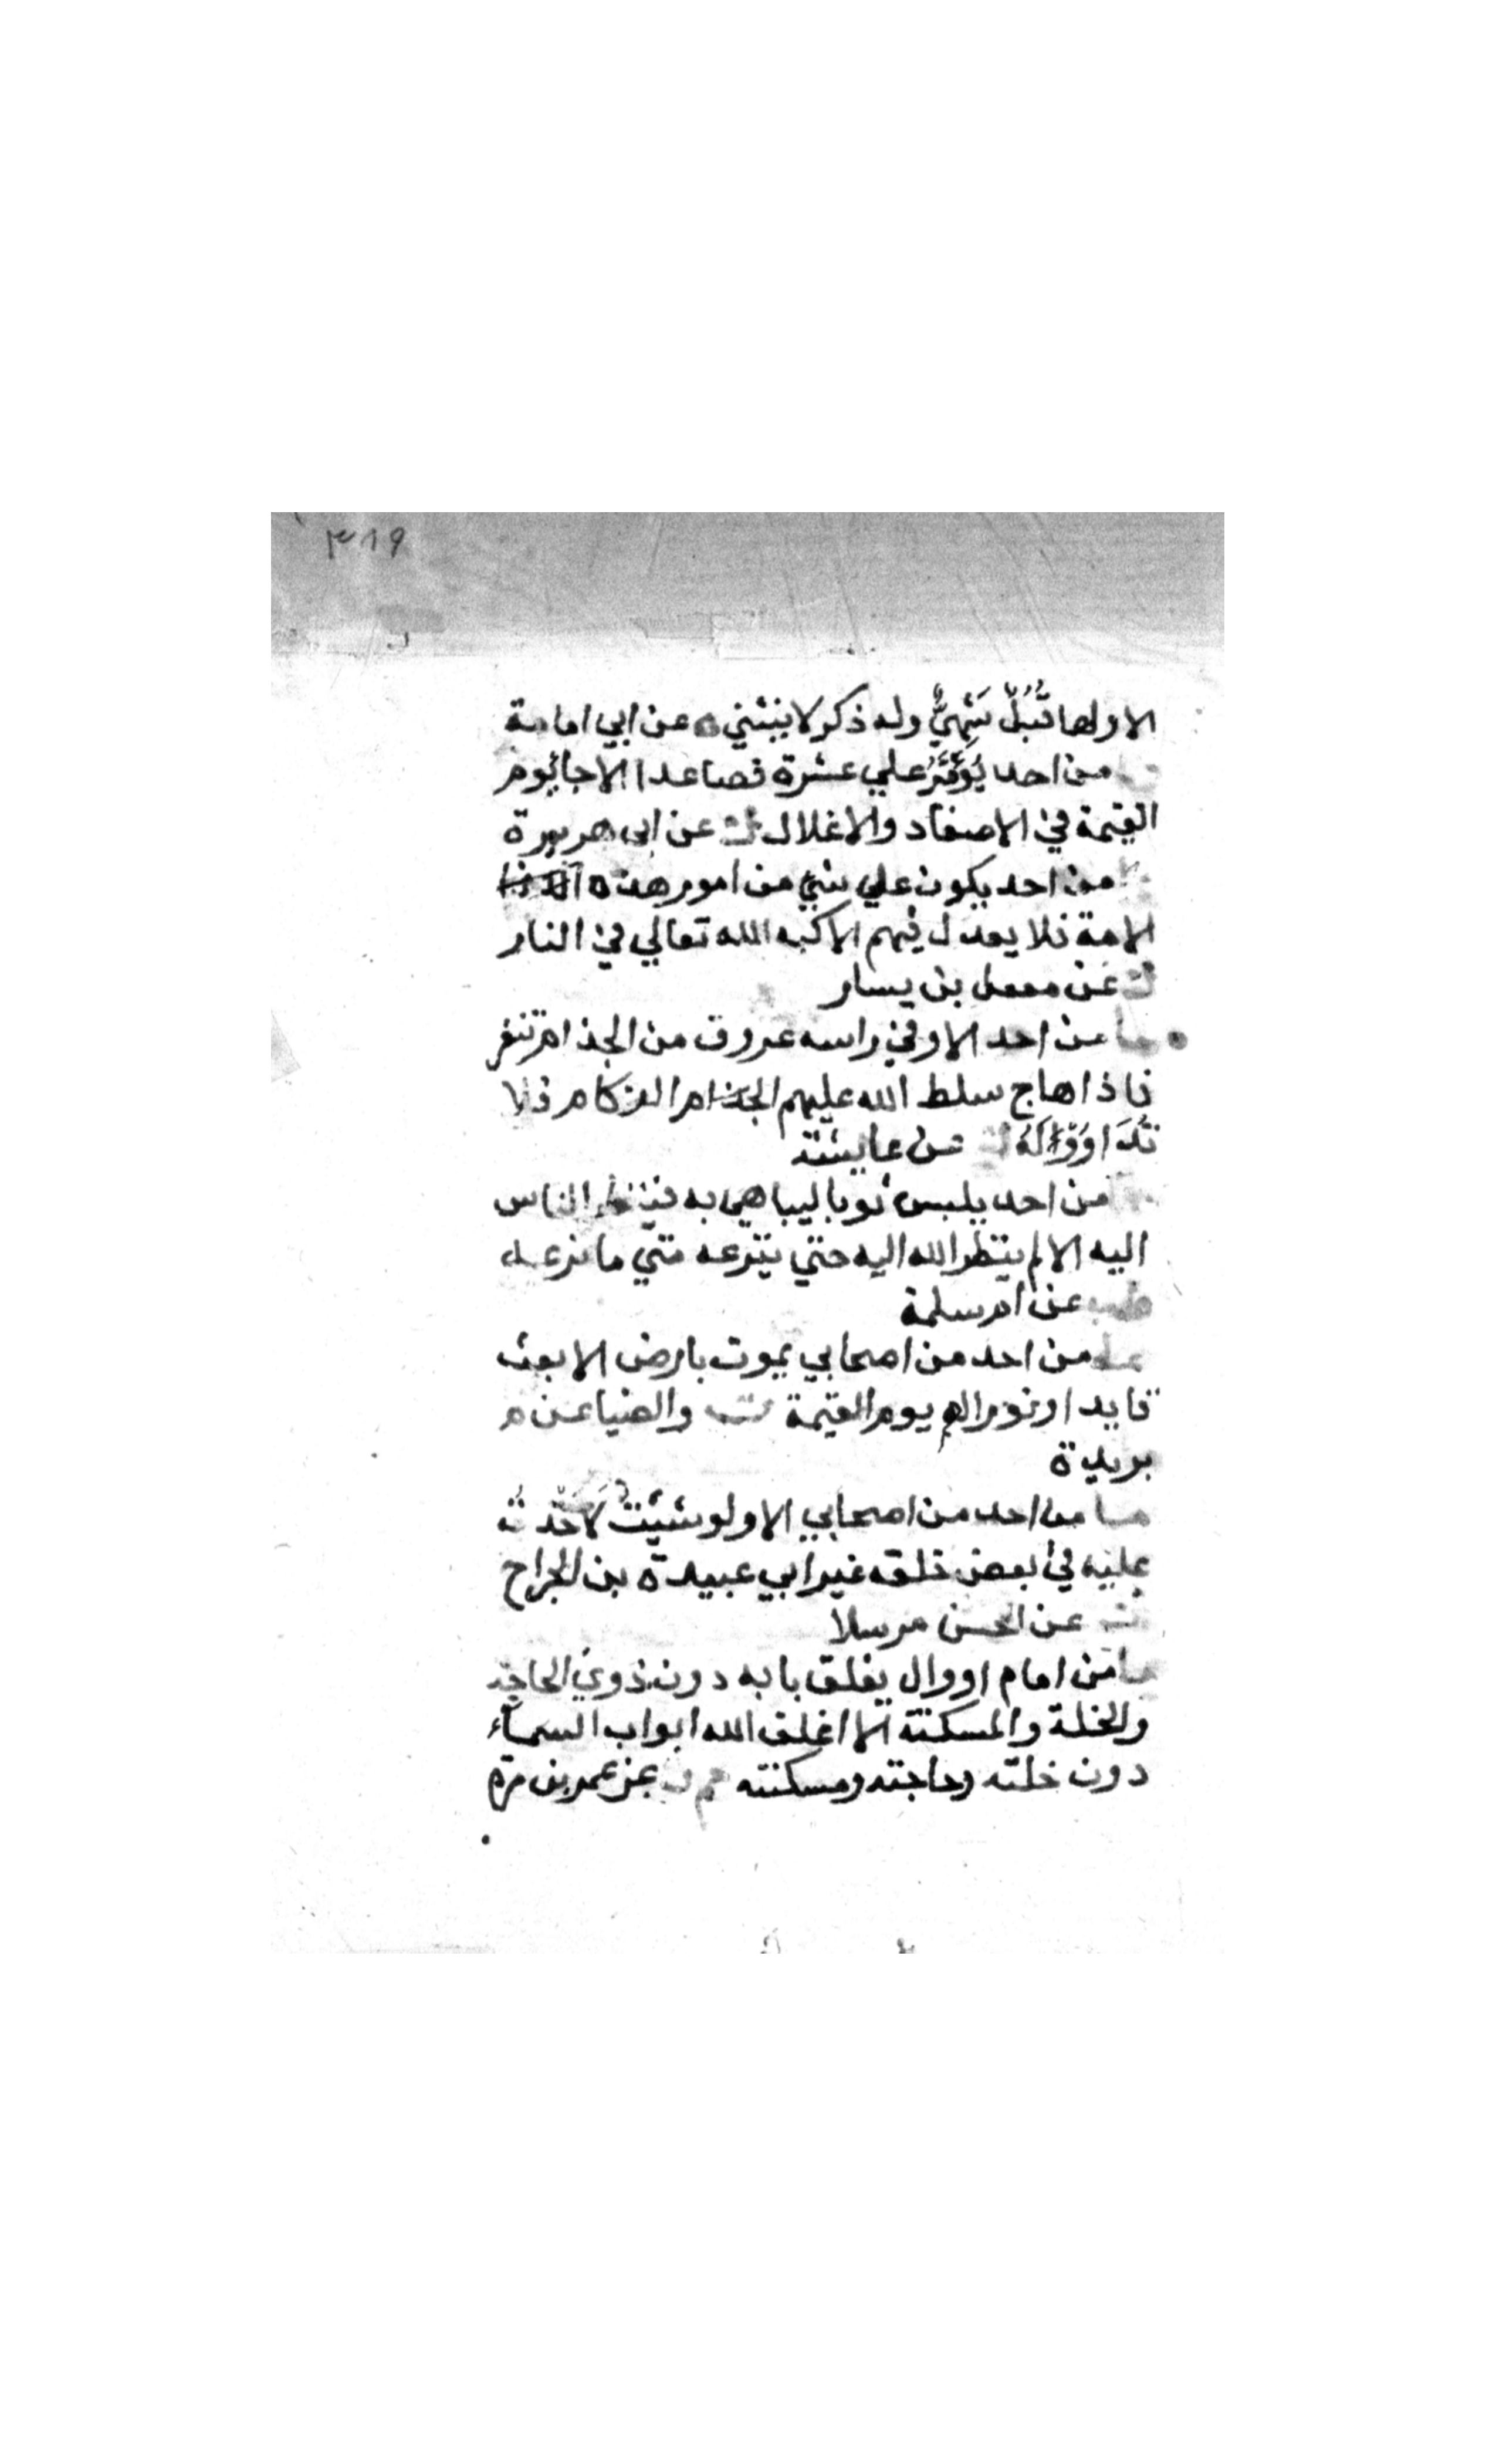 ٣١٩
الا ولها قُبُلٌ شَهِيٌّ وله ذكر لا ينثني ه عن ابي امامة
من احد يُؤَمَّرُ علي عشرة فصاعدا الا جا يوم
القيمة في الاصفاد والاغلال ك عن ابي هريرة
من احد يكون علي شي من امور هذه
الامة فلا يعدل فيهم الا كبه الله تعالي في النار
ك عن معقل بن يسار
ما من احد الا وفي راسه عروق من الجذام تنغر
فاذا هاج سلط الله عليهم الزكام فلا
تَدَاوَوْا لَهُ ك عن عايشة
من احد يلبس ثوبا ليباهي به فينظر الناس
اليه الا لم ينظر الله اليه حتي ينزعه متي ما نزعه
طب عن ام سلمة
ما من احد من اصحابي يموت بارض الا بعث
قايدا ونورا لهم يوم القيمة ت والضيا عن
بريدة
ما من احد من اصحابي الا ولو شيت لاخذت
عليه في بعض خلقه غير ابي عبيدة بن الجراح
ك عن الحسن مرسلا
ما من امام او وال يغلق بابه دون ذوي الحاجة
والخلة والمسكنة الا اغلق الله ابواب السماء
دون خلته وحاجته ومسكنته حم ت عن عمرو بن مرة